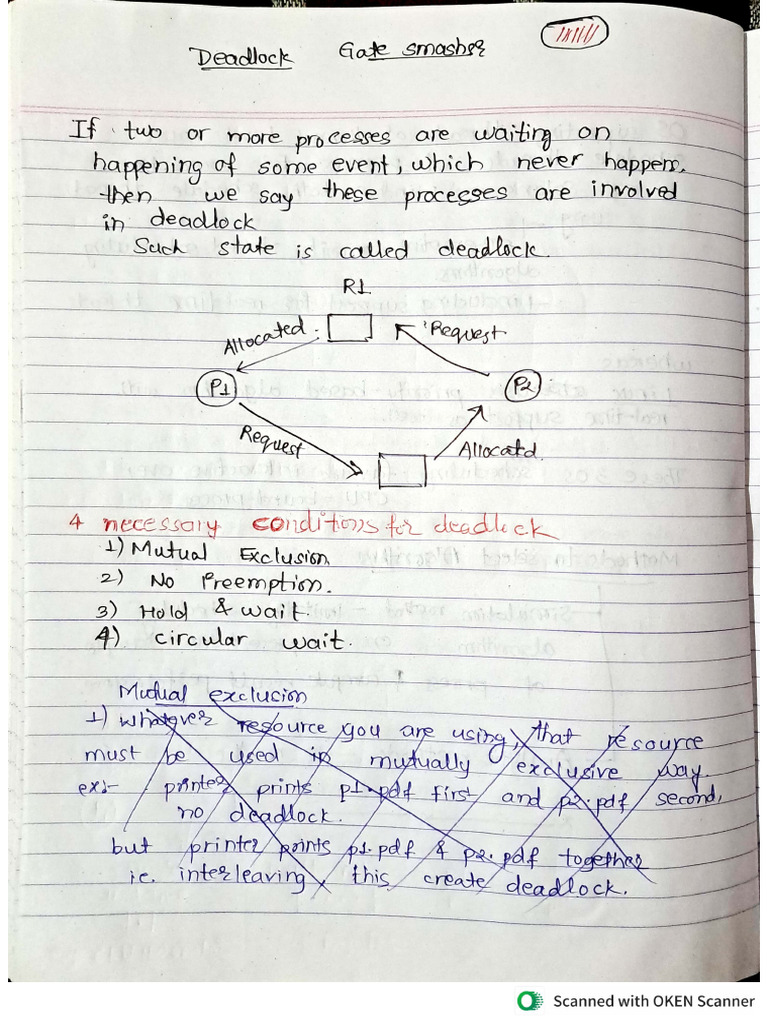 Deadlock Gate smasher
If two or more processes are waiting on
happening of some event, which never happens.
then we say these processes are involved
in deadlock
Such state is called deadlock.
R1.
Allocated
Request
P1
P2
Request
Allocatd.
4 necessary conditions for deadlock
1) Mutual Exclusion
2) No Preemption.
3) Hold & wait.
4) circular wait.
Mutual exclucion
1) whatever resource you are using, that resource
must be used in mutually exclusive way.
ex:- printer prints p1.pdf first and p2.pdf second,
no deadlock.
but printer points p1.pdf & p2.pdf together
ie. interleaving this create deadlock.
Scanned with OKEN Scanner